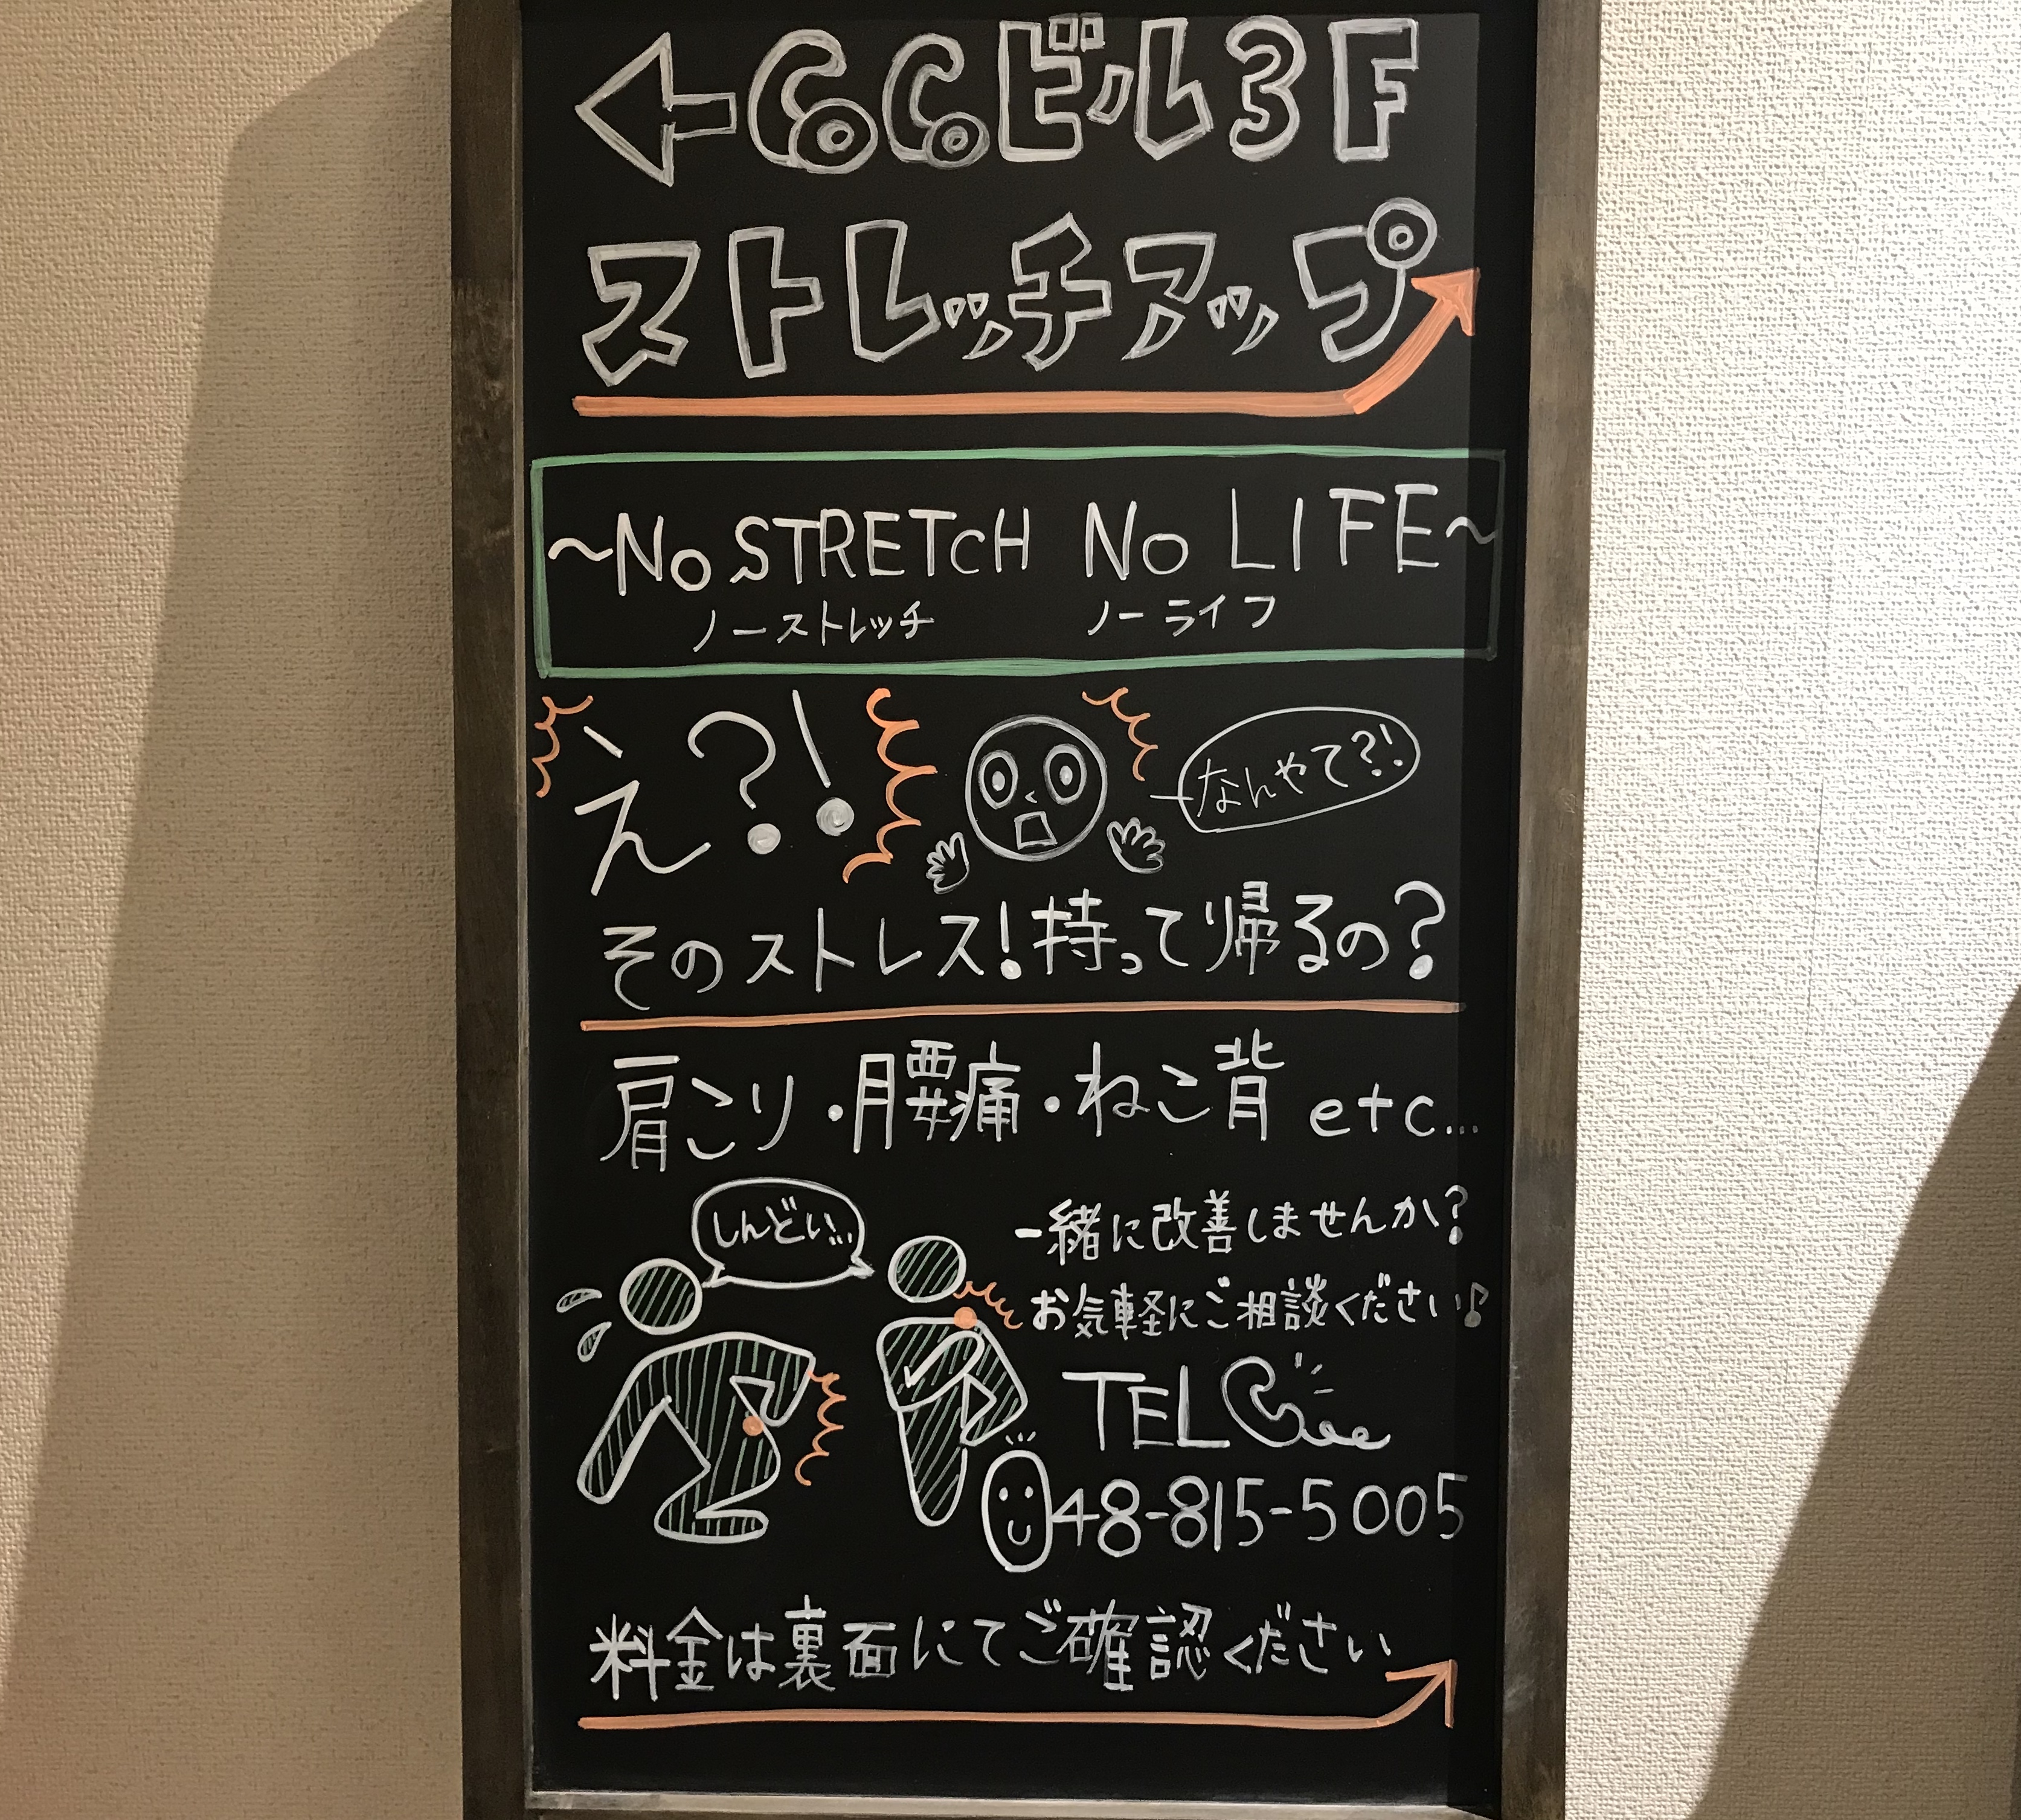 ←COCOビル3F
ストレッチアップ
～NO STRETCH NO LIFE～
ノーストレッチ ノーライフ
え?!
なんやて?!
そのストレス!持って帰るの?
肩こり・腰痛・ねこ背 etc...
しんどい...
一緒に改善しませんか?
お気軽にご相談ください♪
TEL
048-815-5005
料金は裏面にてご確認ください